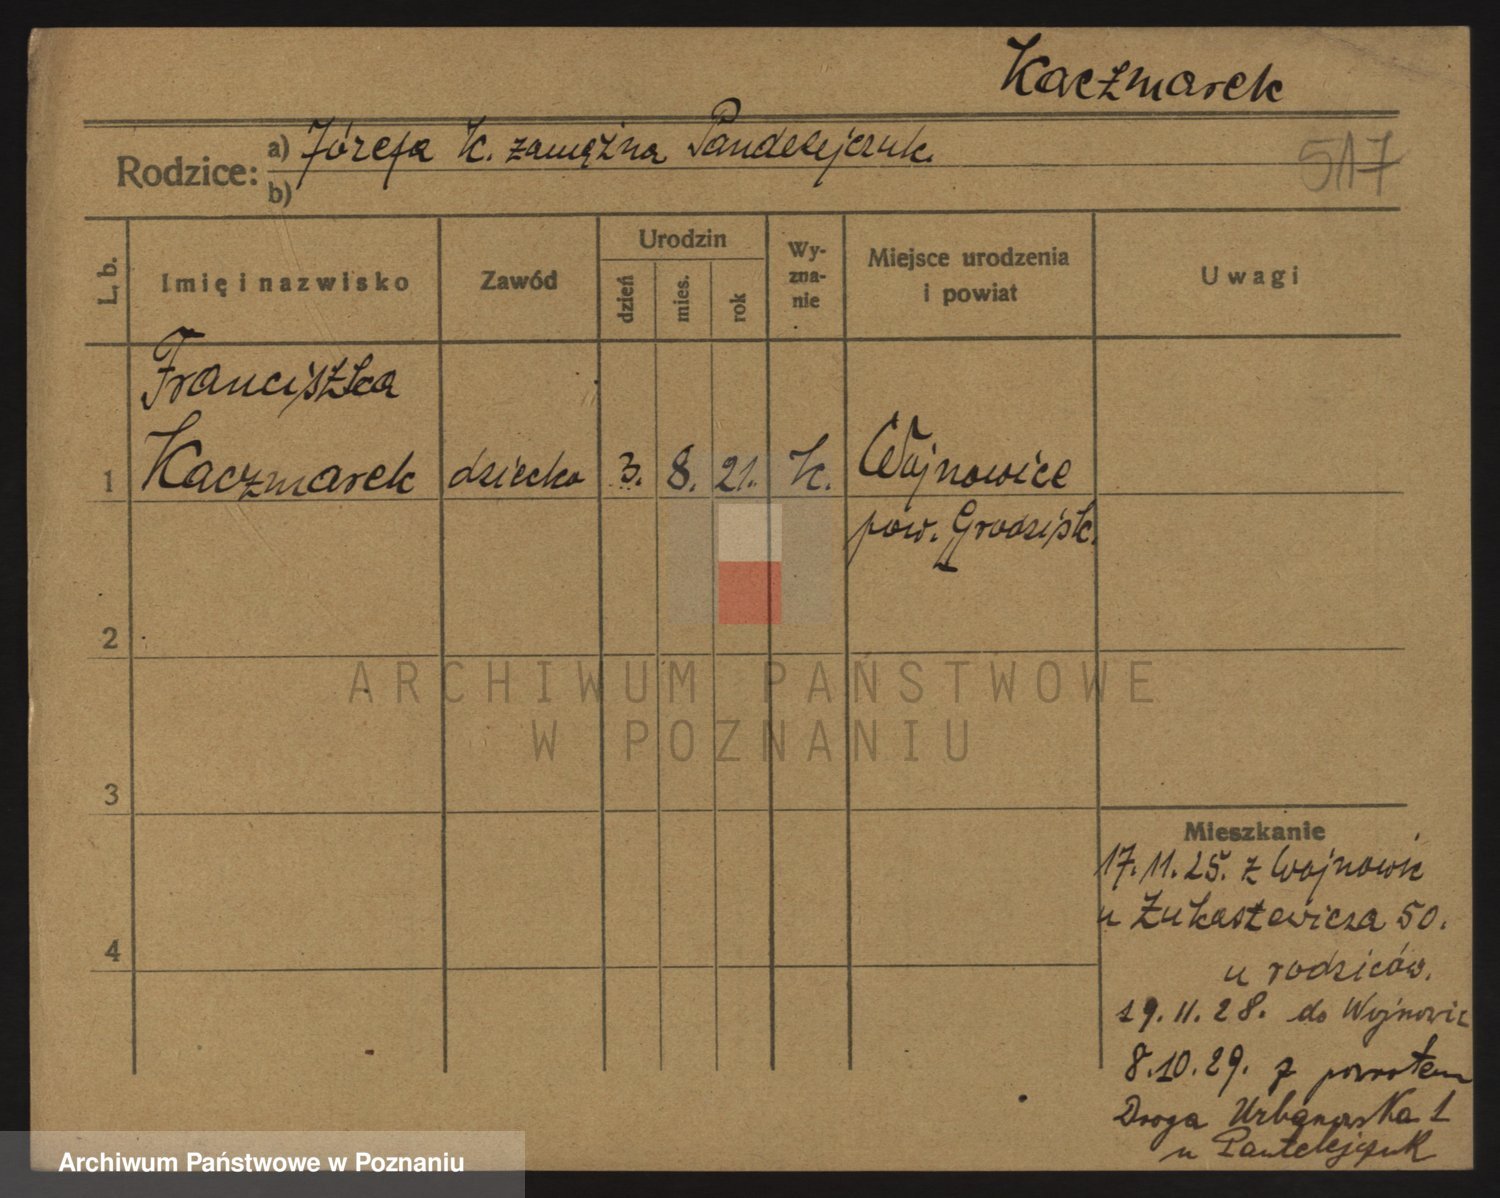 Kaczmarek
Rodzice: a) Józefa K. zamężna Pandelejczuk.
b)
517
L. b.
Imię i nazwisko
Zawód
Urodzin
dzień
mies.
rok
Wy-
zna-
nie
Miejsce urodzenia
i powiat
Uwagi
Franciszka
1 Kaczmarek dziecko 3. 8. 21. K. Wojnowice
pow. Grodzisk.
2
ARCHIWUM PAŃSTWOWE
W POZNANIU
3
4
Mieszkanie
17.11.25. z Wojnowic
u Łukaszewicza 50.
u rodziców.
19.11.28. do Wojnowic
8.10.29. z powrotem
Droga Urbanowska 1
u Pantelejczuk
Archiwum Państwowe w Poznaniu